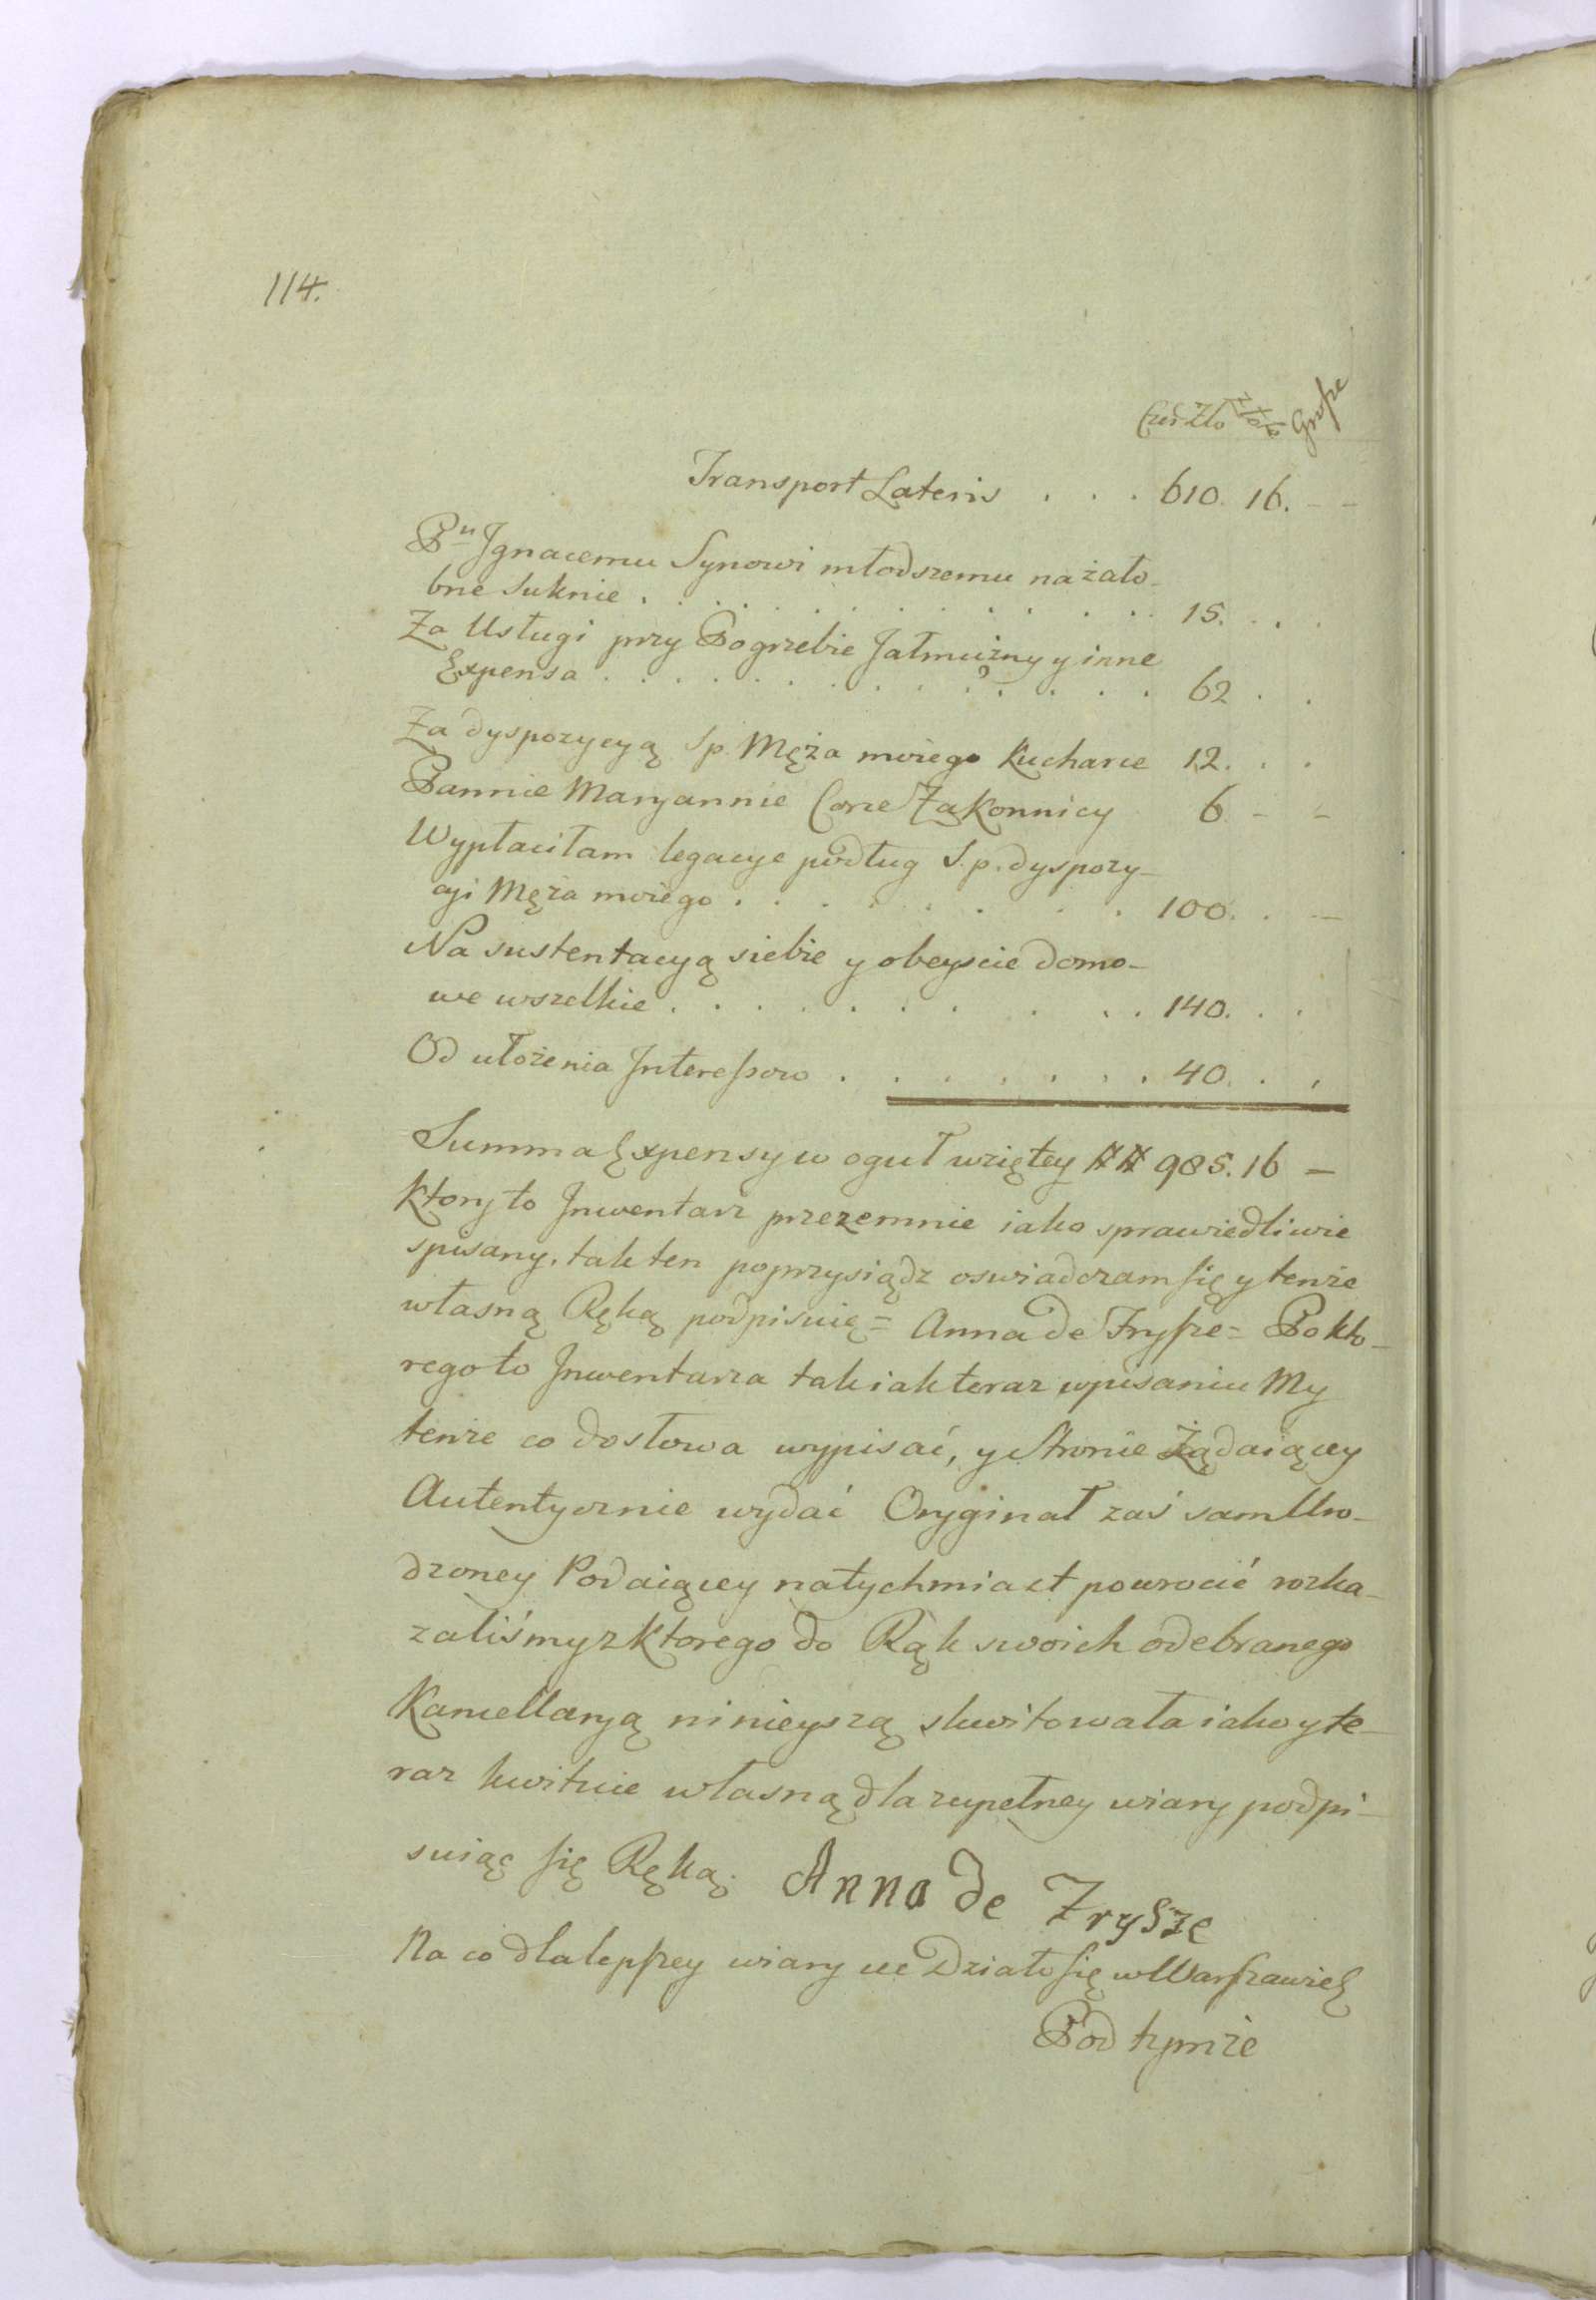 114.
Czer Zło Złote Grosze
Transport Lateris . . . 610. 16. - -
Pnu Jgnacemu Synowi młodszemu na żało-
bne Suknie . . . . . . . . . . . . 15. . . .
Za Usługi przy Pogrzebie Jałmużny y inne
Expensa . . . . . . . . . . . . 62 . .
Za dyspozycyą Sp. Męża moiego Kucharce 12. . .
Pannie Maryannie Corce Zakonnicy 6. - -
Wypłaciłam legacye podług S. p. dyspozy-
cyi Męża moiego . . . . . . . . . 100. . -
Na sustentacyą siebie y obeyscie domo-
we wszelkie . . . . . . . . . . 140. . .
Od ułożenia Jnteressow . . . . . . . . 40. . .
Summa Expensy w oguł wziętey ## 985. 16 -
Ktory to Jnwentarz przezemnie iako sprawiedliwie
spisany, tak ten poprzysiądz oswiadczam się y tenże
własną Ręką podpisuię = Anna de Frysze = Po kto-
rego to Jnwentarza tak iak teraz wpisaniu My
tenże co do słowa wypisać, y Stronie Żądaiącey
Autentycznie wydać Oryginał zaś sam Uro-
dzoney Podaiącey natychmiast powrocić rozka-
zaliśmy z ktorego do Rąk swoich odebranego
Kancellaryą ninieyszą skwitowała iako y te-
raz kwituie własną dla zupełney wiary podpi-
suiąc się Ręką. Anna de Frysze
Na co dla lepszey wiary etc Działo się w Warszawie
Pod tymże